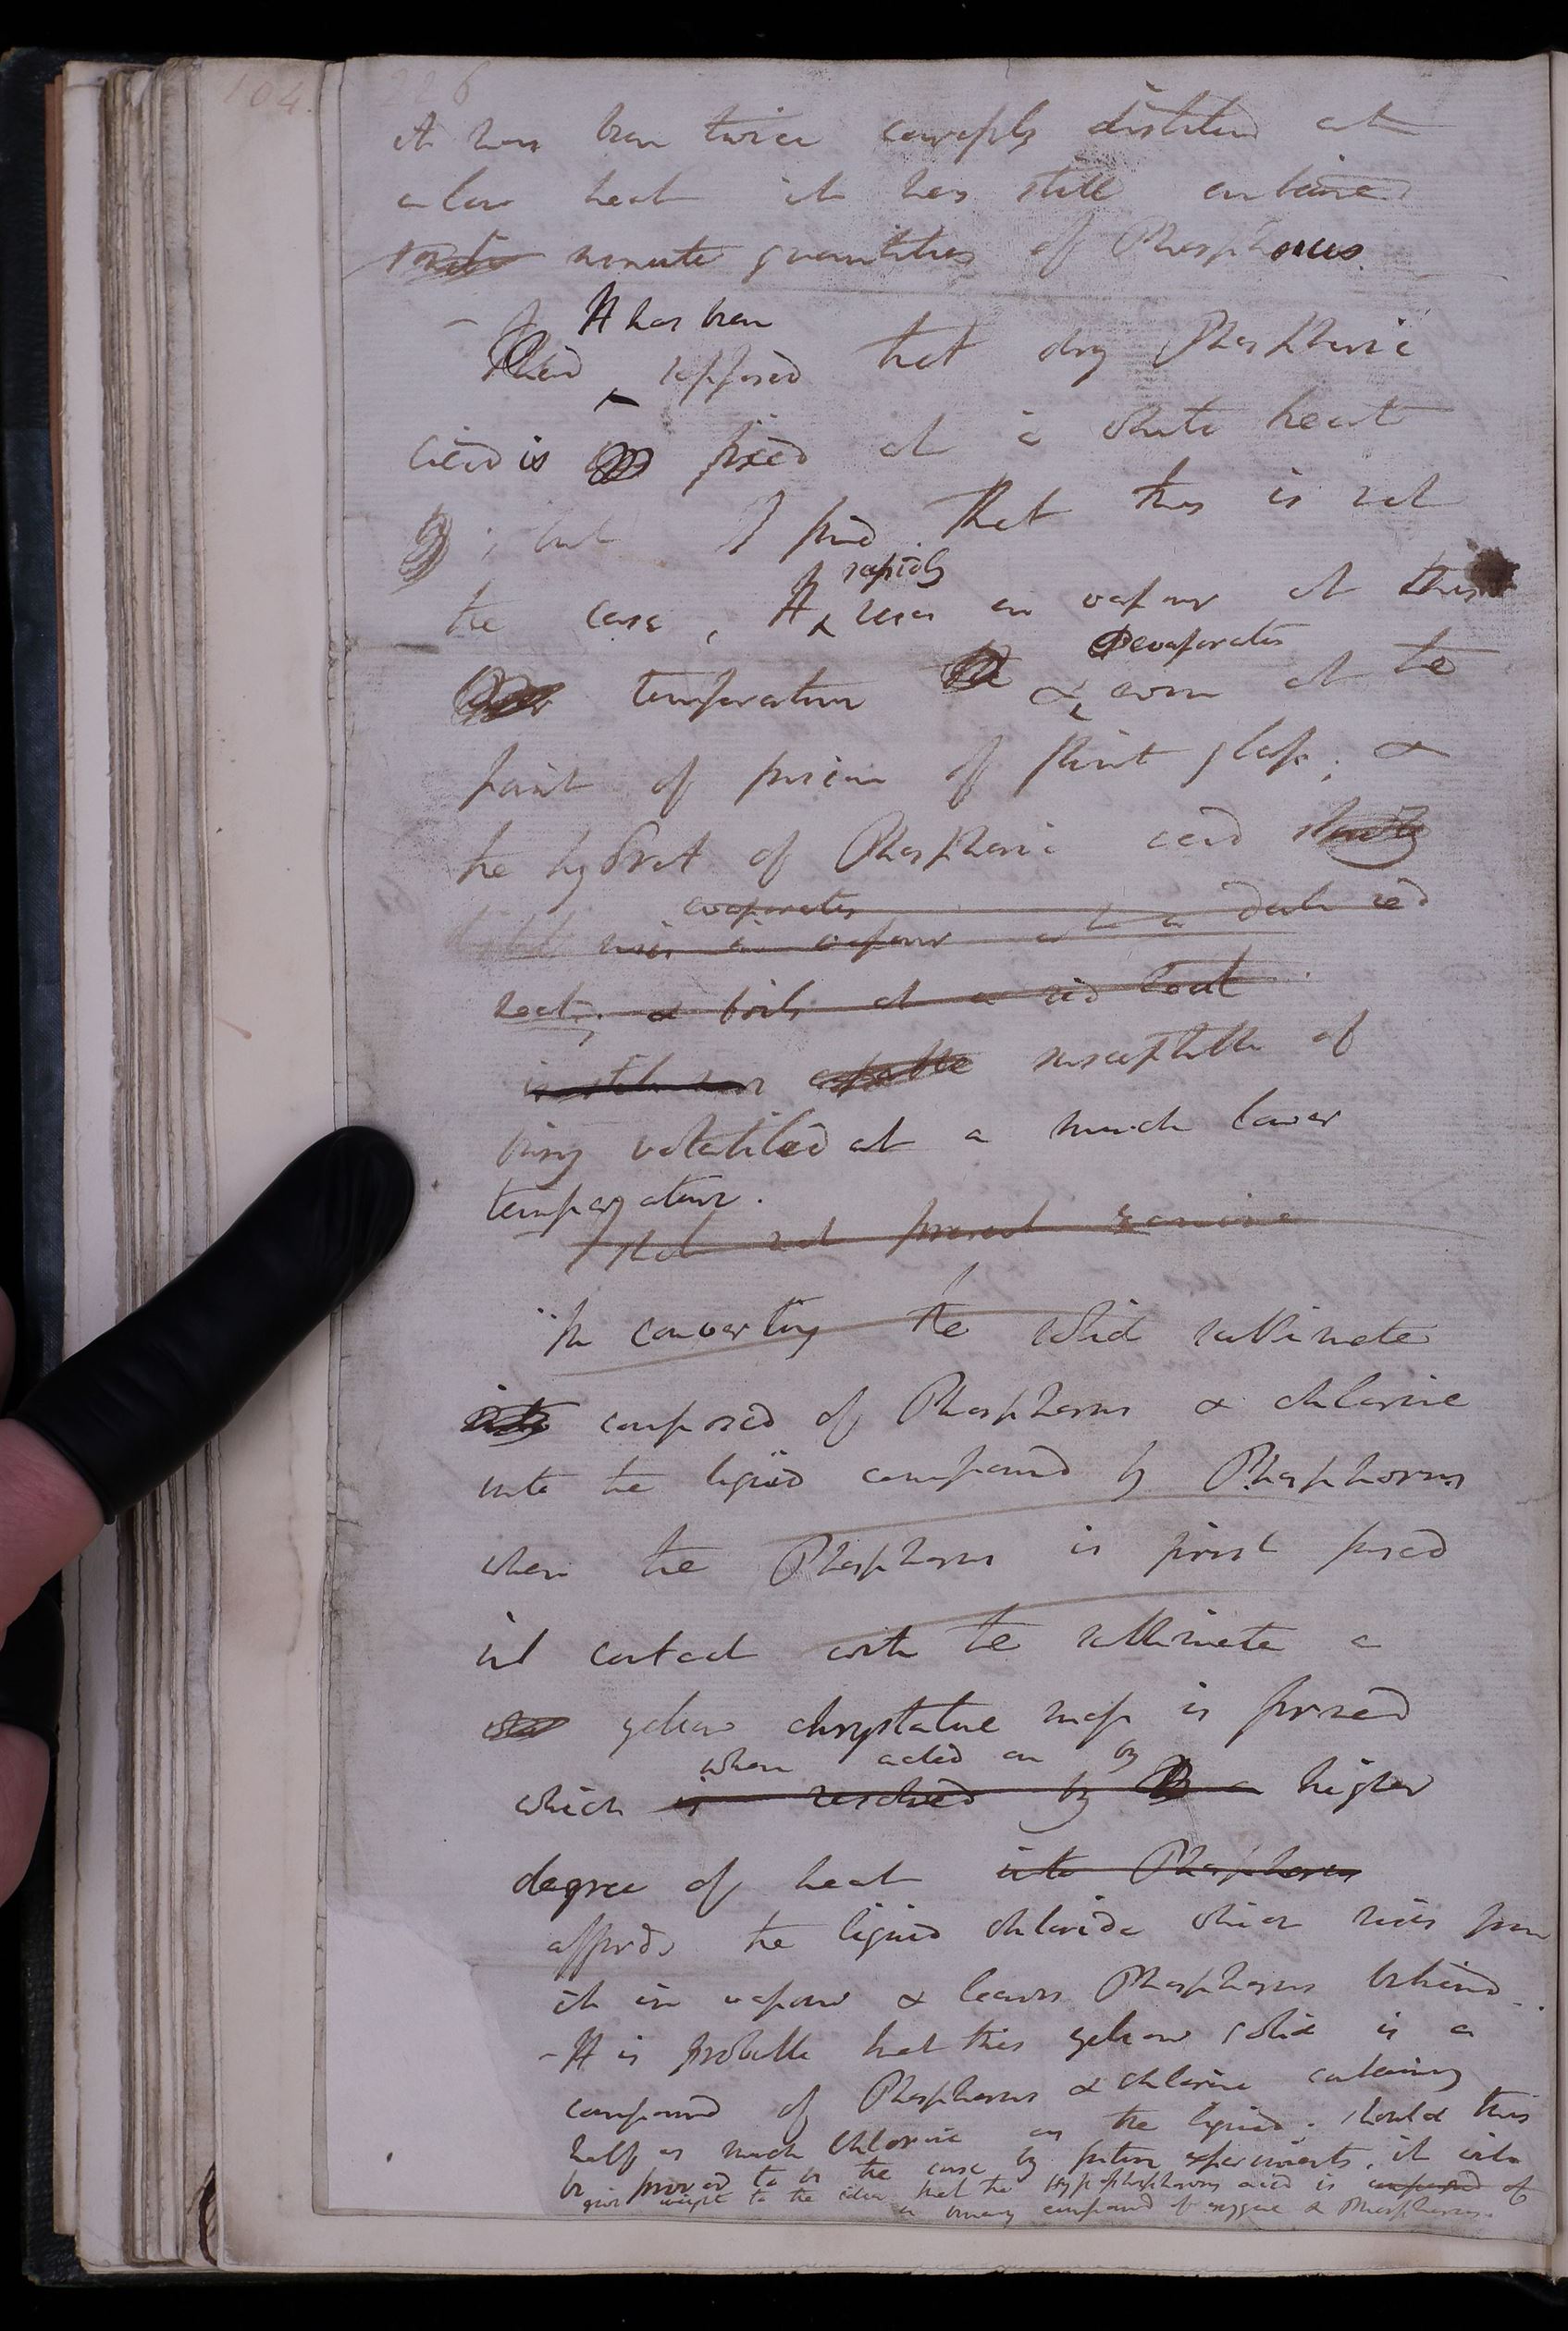 104.
226
it has been twice carefully distilled at
a low heat it has still contained
minute quantities of Phosphorus
- It has been
supposed that dry Phosphoric
acid is fixed at a white heat
; but I find that this is not
rapidly
the case, It rises in vapour at this
evaporates
temperature & even at the
point of fusion of flint glass; &
the hydrat of Phosphoric acid slowly
evaporates
rises in vapour at a dull red
heat, & boils at a red heat
is still more capable susceptible of
being volatilised at a much lower
temperature.
In converting the solid sublimate
into composed of Phosphorus & chlorine
into the liquid compound by Phosphorus
when the Phosphorus is first fused
in contact with the sublimate a
yellow chrystaline mass is formed
when acted on by
which is resolved by a higher
degree of heat into Phosphorus
affords the liquid chloride which rises from
it in vapour & leaves Phosphorus behind.
- It is probable that this yellow solid is a
compound of Phosphorus & chlorine containing
half as much chlorine as the liquid; should this
be proved to be the case by future experiments, it will
give weight to the idea that the hypophosphorous acid is composed of
a binary compound of oxygene & Phosphorus.